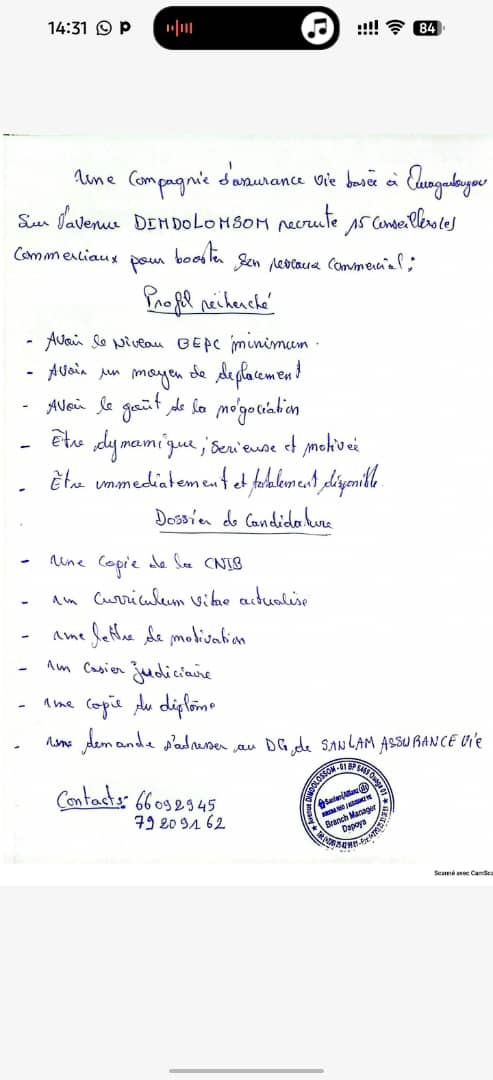 14:31
84
Une Compagnie d'assurance Vie basée à Ouagadougou
Sur l'avenue DIMDOLOMSOM recrute 15 Conseillers(es)
Commerciaux pour booster son reseaux Commercial;
Profil recherché
- Avoir le Niveau BEPC minimum.
- Avoir un moyen de deplacement
- Avoir le goût de la négociation
- Être dymamique, serieuse et motivée
- Être immediatement et totalement disponible.
Dossier de Candidature
- Une Copie de la CNIB
- Un Curriculum vitae actualisé
- Une lettre de motivation
- Un Casier judiciaire
- Une copie du diplôme
- Une demande s'adresser au DG de SANLAM ASSURANCE Vie
Contacts: 66092945
79209162
Avenue DIMDOLOSSOM - 01 BP
Sanlam Allianz
Branch Manager
Dapoya
Scanné avec CamSca